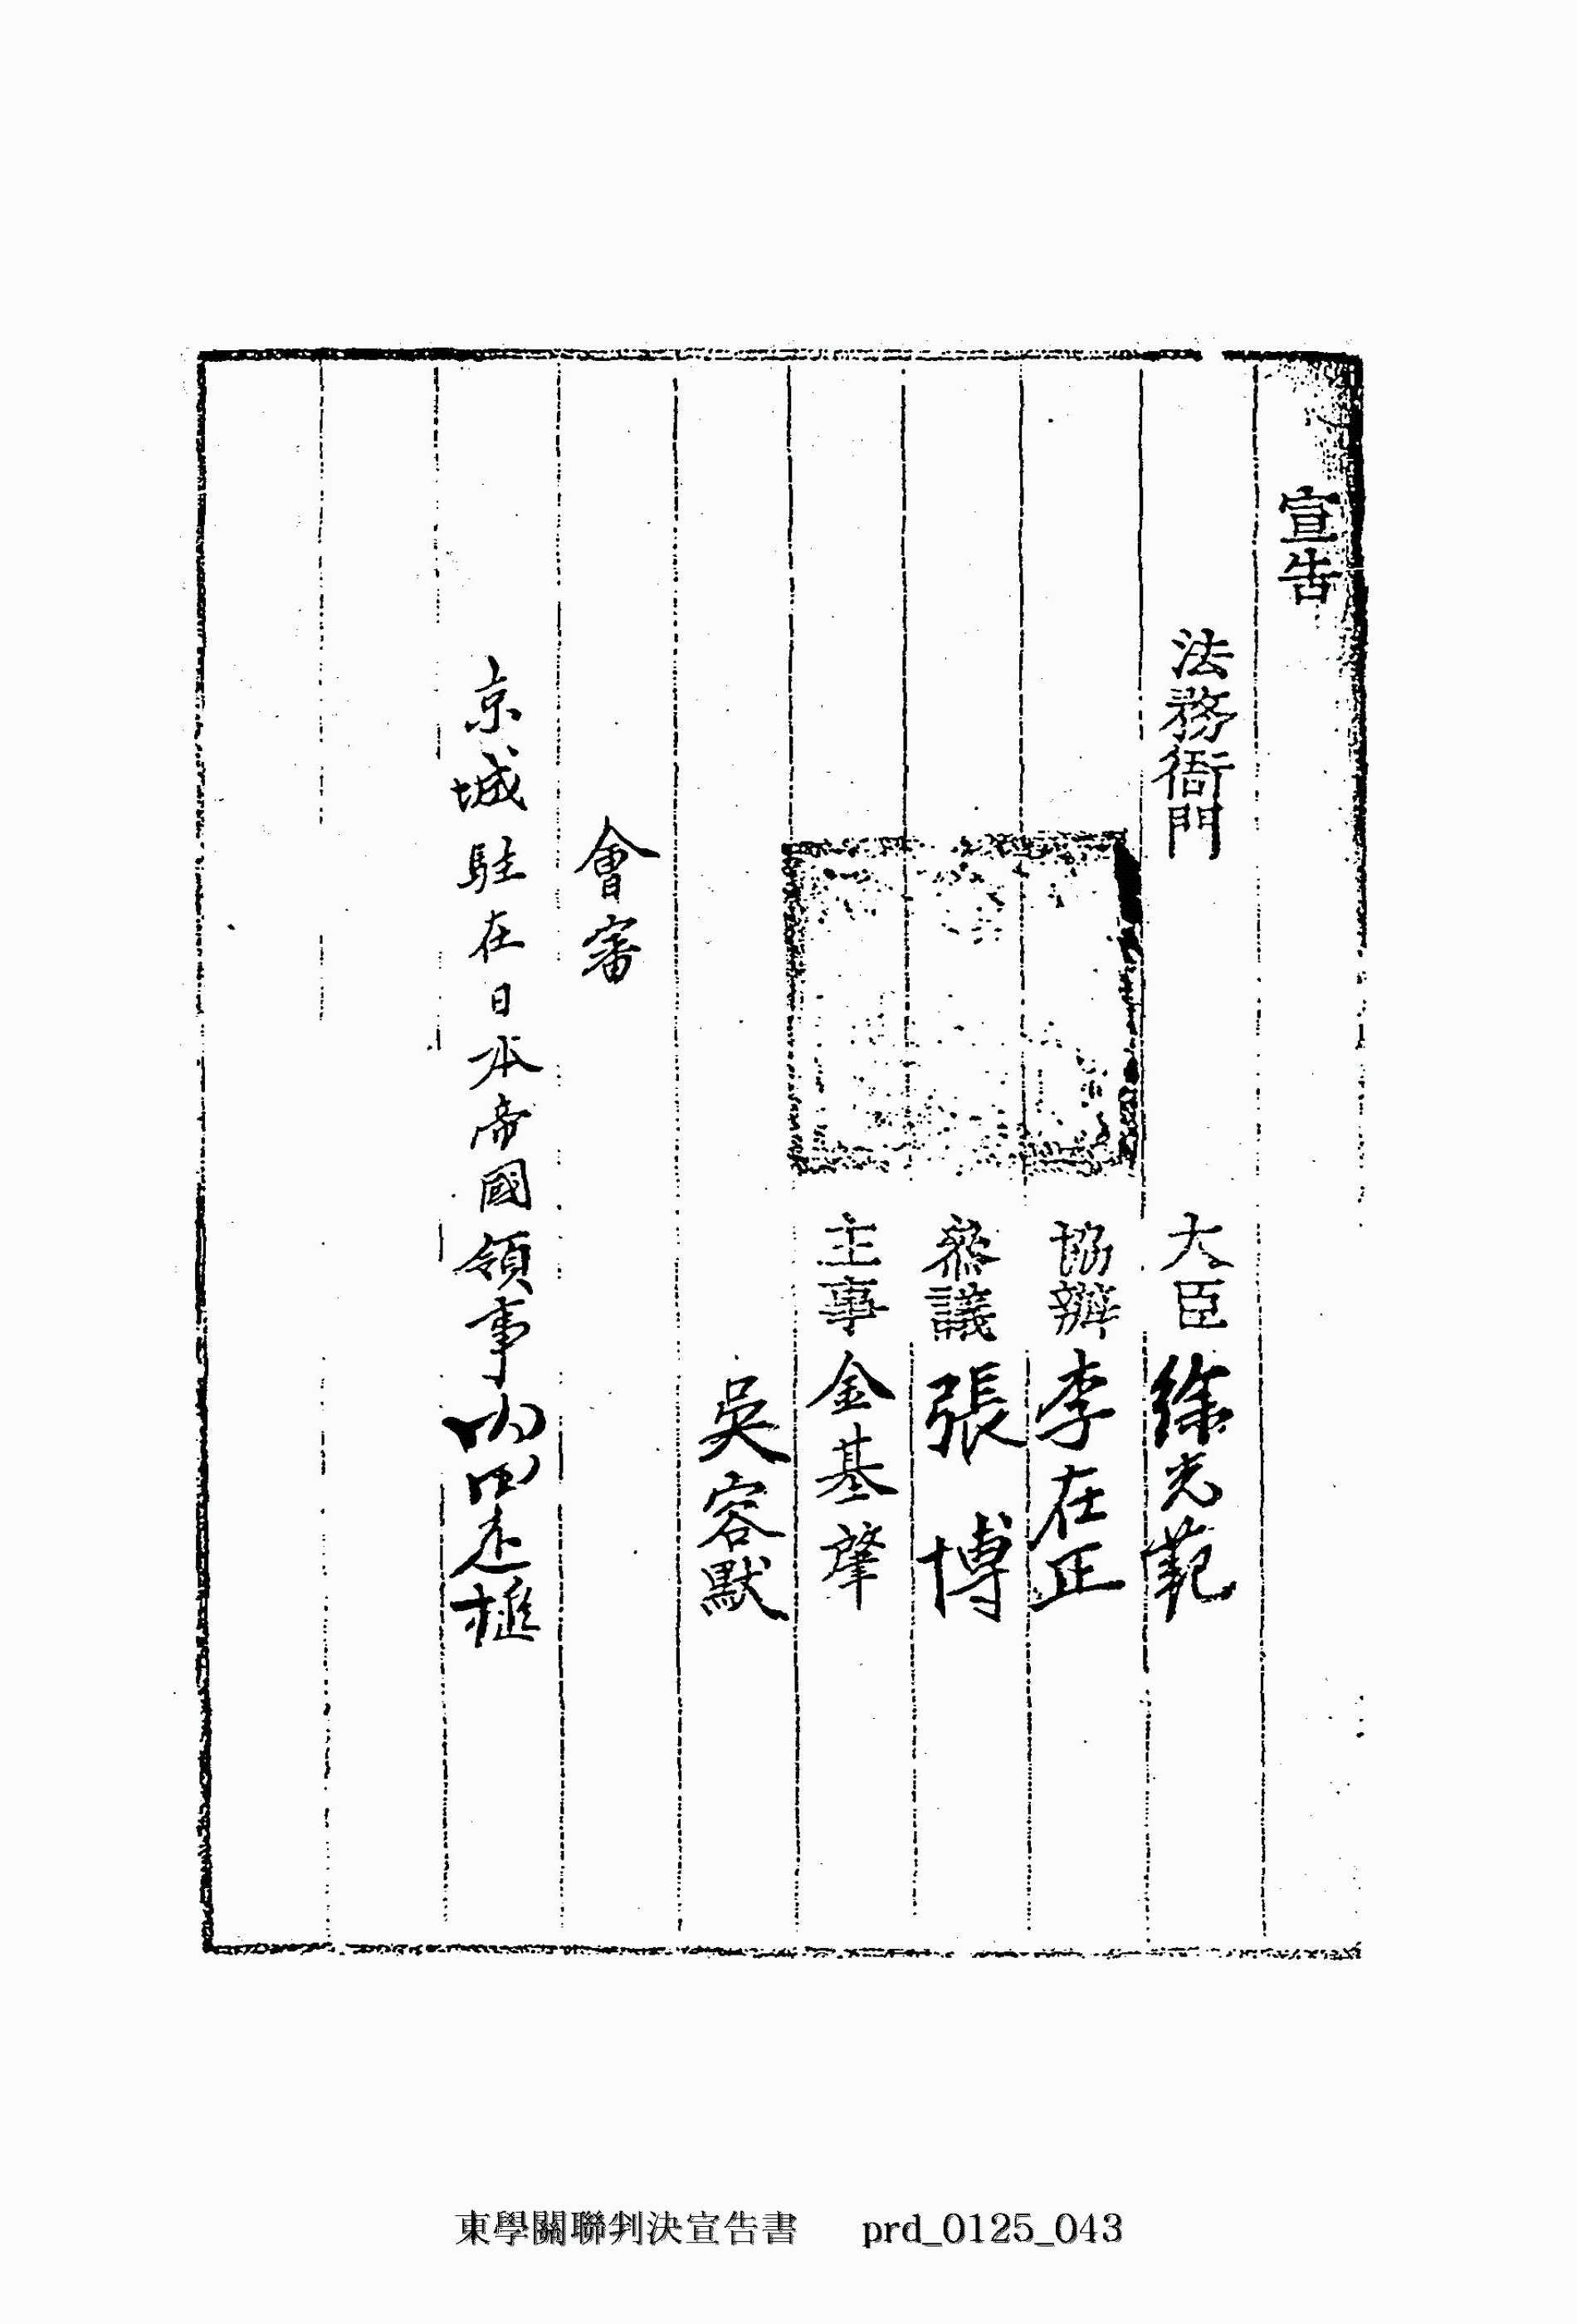 宣告
法務衙門 大臣 徐光範
協辦 李在正
參議 張博
主事 金基肇
吳容默
會審
京城駐在日本帝國領事 內田定槌
東學關聯判決宣告書 prd_0125_043